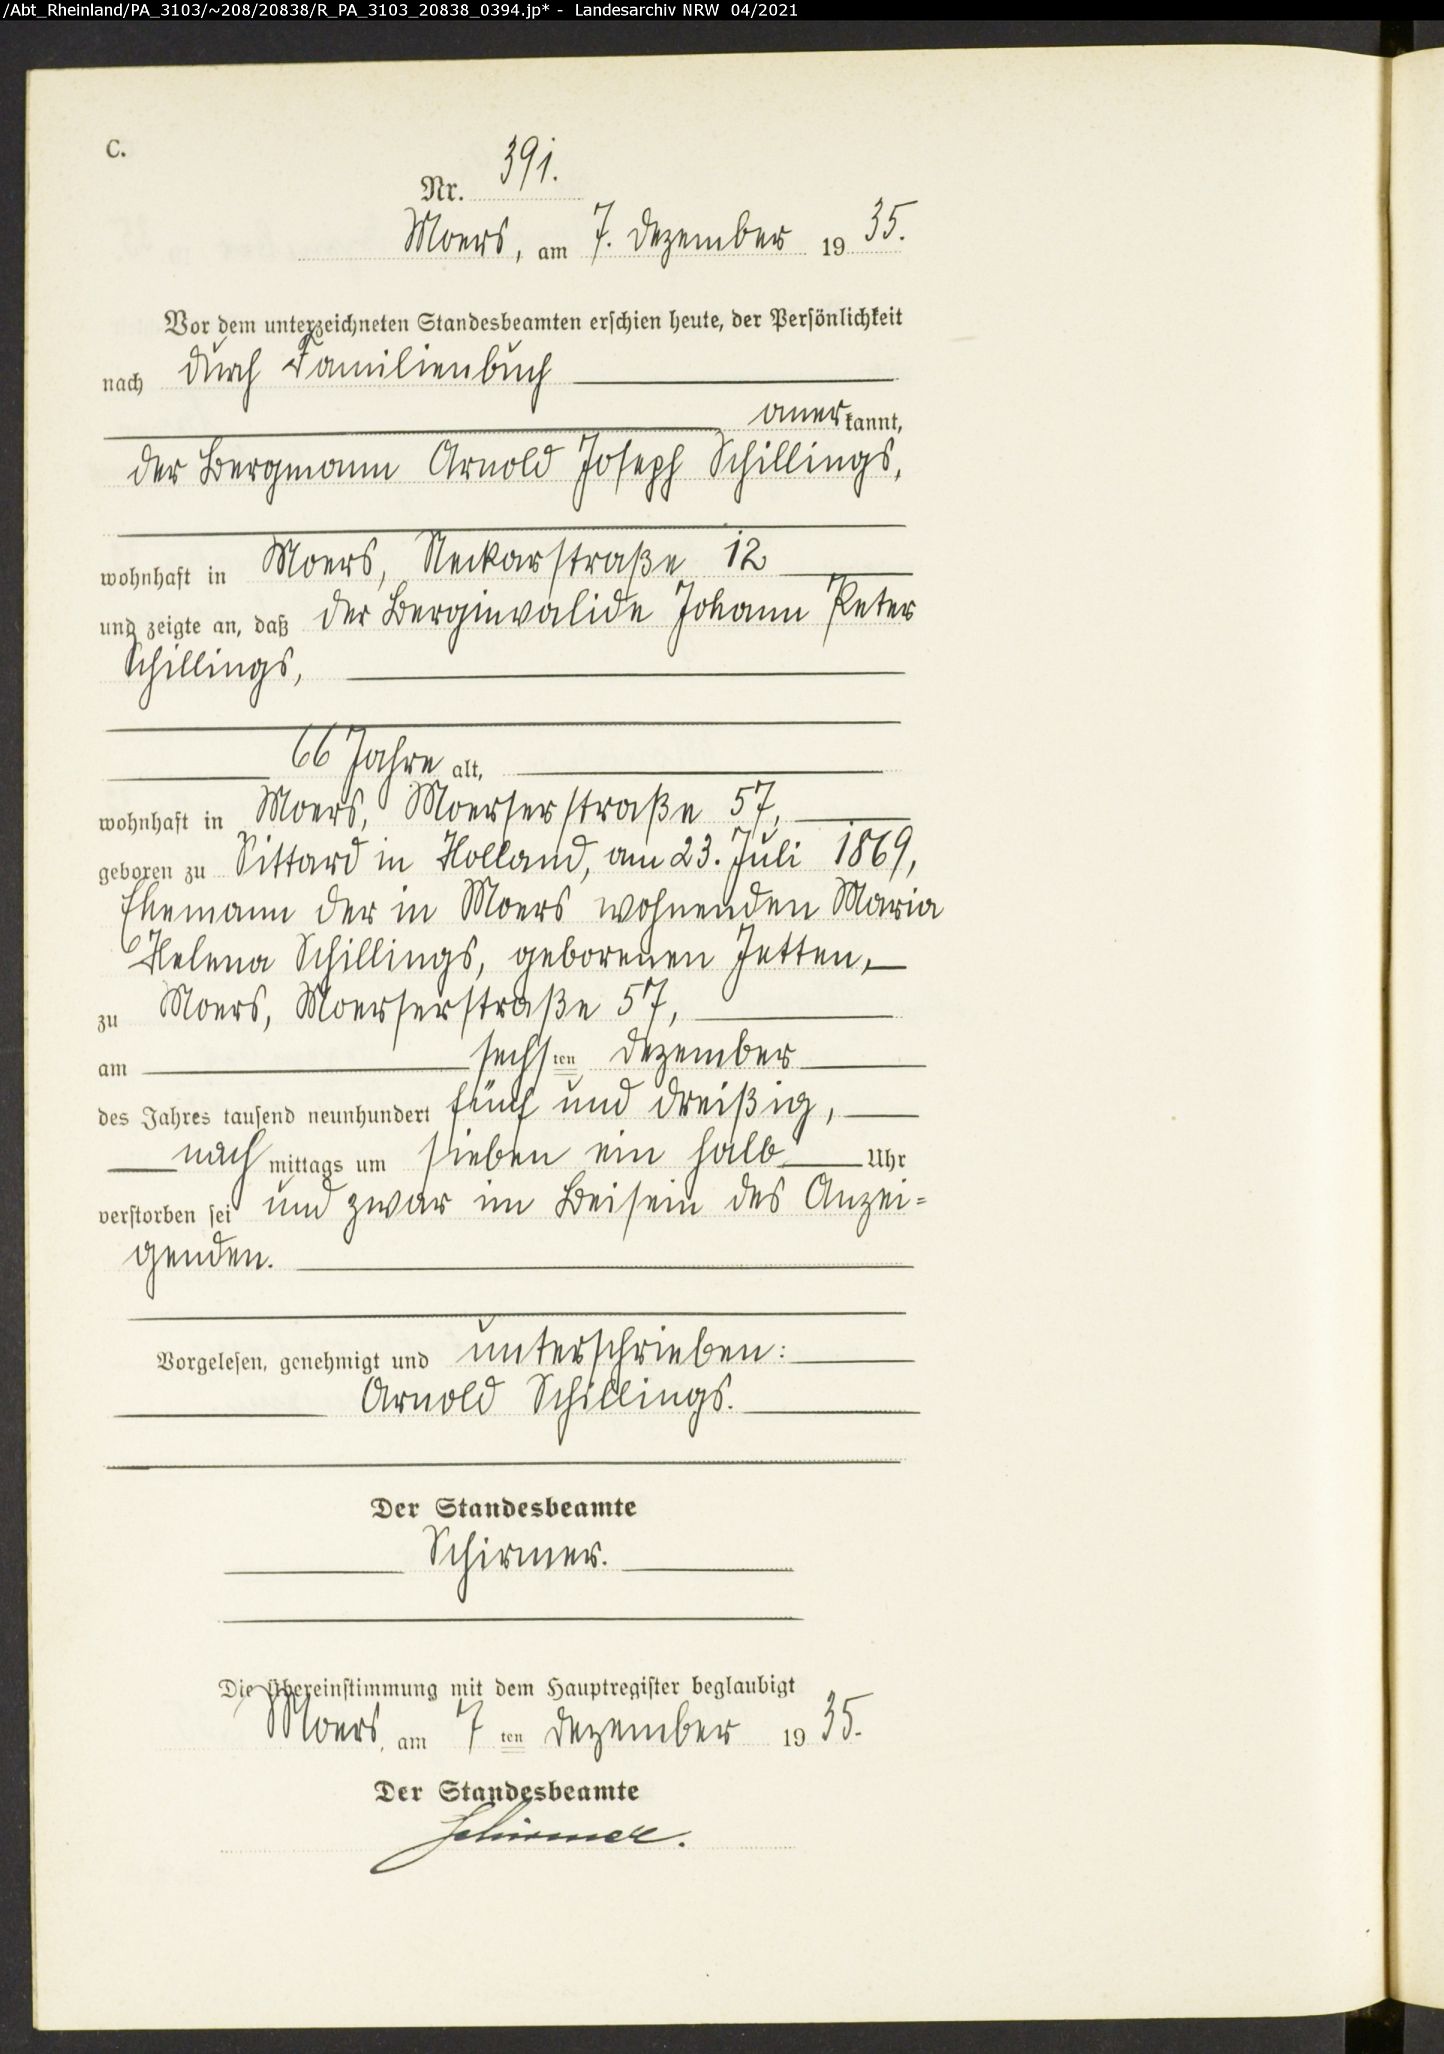 /Abt_Rheinland/PA_3103/~208/20838/R_PA_3103_20838_0394.jp* - Landesarchiv NRW 04/2021
C.
Nr. 391.
Moers, am 7. Dezember 1935.
Vor dem unterzeichneten Standesbeamten erschien heute, der Persönlichkeit
nach durch Familienbuch
anerkannt,
der Bergmann Arnold Joseph Schillings,
wohnhaft in Moers, Neckarstraße 12
und zeigte an, daß der Berginvalide Johann Peter
Schillings,
66 Jahre alt,
wohnhaft in Moers, Moerserstraße 57,
geboren zu Sittard in Holland, am 23. Juli 1869,
Ehemann der in Moers wohnenden Maria
Helena Schillings, geborenen Jetten,
zu Moers, Moerserstraße 57,
am sechsten Dezember
des Jahres tausend neunhundert fünf und dreißig,
nachmittags um sieben ein halb Uhr
verstorben sei und zwar im Beisein des Anzei=
genden.
Vorgelesen, genehmigt und unterschrieben:
Arnold Schillings.
Der Standesbeamte
Schirmer.
Die Übereinstimmung mit dem Hauptregister beglaubigt
Moers, am 7ten Dezember 1935.
Der Standesbeamte
Schirmer.